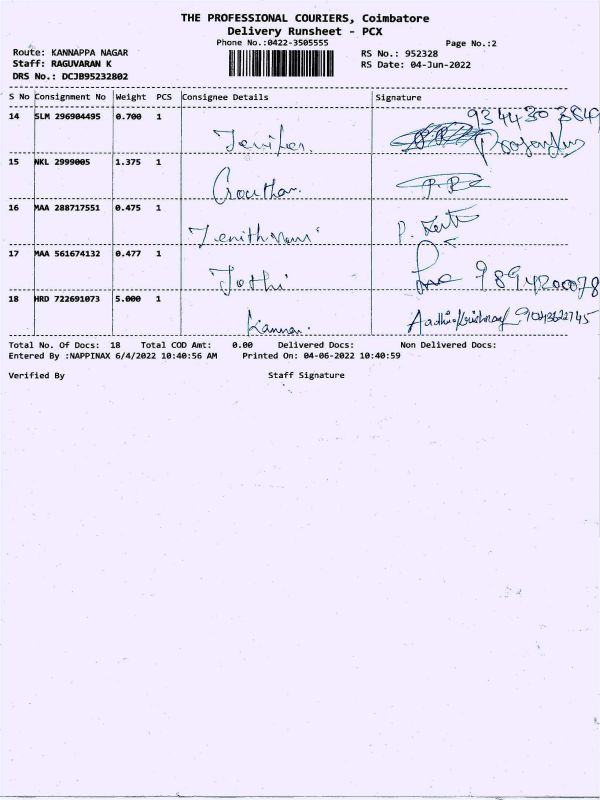 THE PROFESSIONAL COURIERS, Coimbatore
Delivery Runsheet - PCX
Phone No.:0422-3505555 Page No.:2
Route: KANNAPPA NAGAR RS No.: 952328
Staff: RAGUVARAN K RS Date: 04-Jun-2022
DRS No.: DCJB95232802
S No Consignment No Weight PCS Consignee Details Signature
14 SLM 296904495 0.700 1
Jenifer.
15 NKL 2999005 1.375 1
Goutham.
16 MAA 288717551 0.475 1
17 MAA 561674132 0.477 1
Jothi 9894200078
18 HRD 722691073 5.000 1
Kannan.
Total No. Of Docs: 18 Total COD Amt: 0.00 Delivered Docs: Non Delivered Docs:
Entered By :NAPPINAX 6/4/2022 10:40:56 AM Printed On: 04-06-2022 10:40:59
Verified By Staff Signature